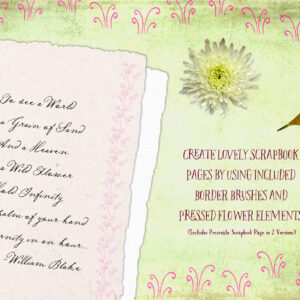 To see a World
a Grain of Sand
And a Heaven
a Wild Flower
Hold Infinity
palm of your hand
ernity in an hour...
-William Blake
CREATE LOVELY SCRAPBOOK
PAGES BY USING INCLUDED
BORDER BRUSHES AND
PRESSED FLOWER ELEMENTS
(Includes Printable Scrapbook Page in 2 Versions)